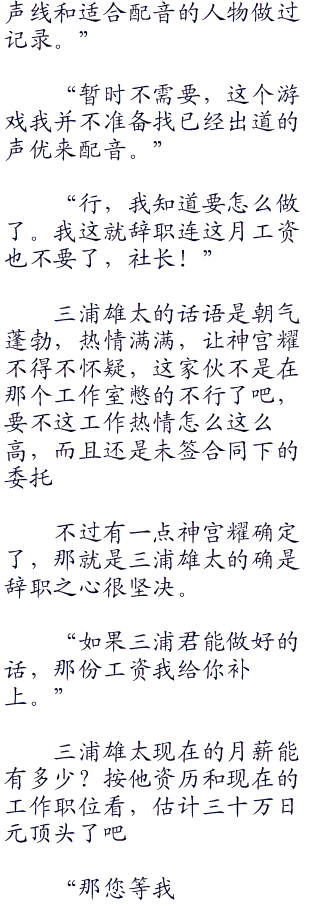 声线和适合配音的人物做过
记录。”
“暂时不需要，这个游
戏我并不准备找已经出道的
声优来配音。”
“行，我知道要怎么做
了。我这就辞职连这月工资
也不要了，社长！”
三浦雄太的话语是朝气
蓬勃，热情满满，让神宫耀
不得不怀疑，这家伙不是在
那个工作室憋的不行了吧，
要不这工作热情怎么这么
高，而且还是未签合同下的
委托
不过有一点神宫耀确定
了，那就是三浦雄太的确是
辞职之心很坚决。
“如果三浦君能做好的
话，那份工资我给你补
上。”
三浦雄太现在的月薪能
有多少？按他资历和现在的
工作职位看，估计三十万日
元顶头了吧
“那您等我